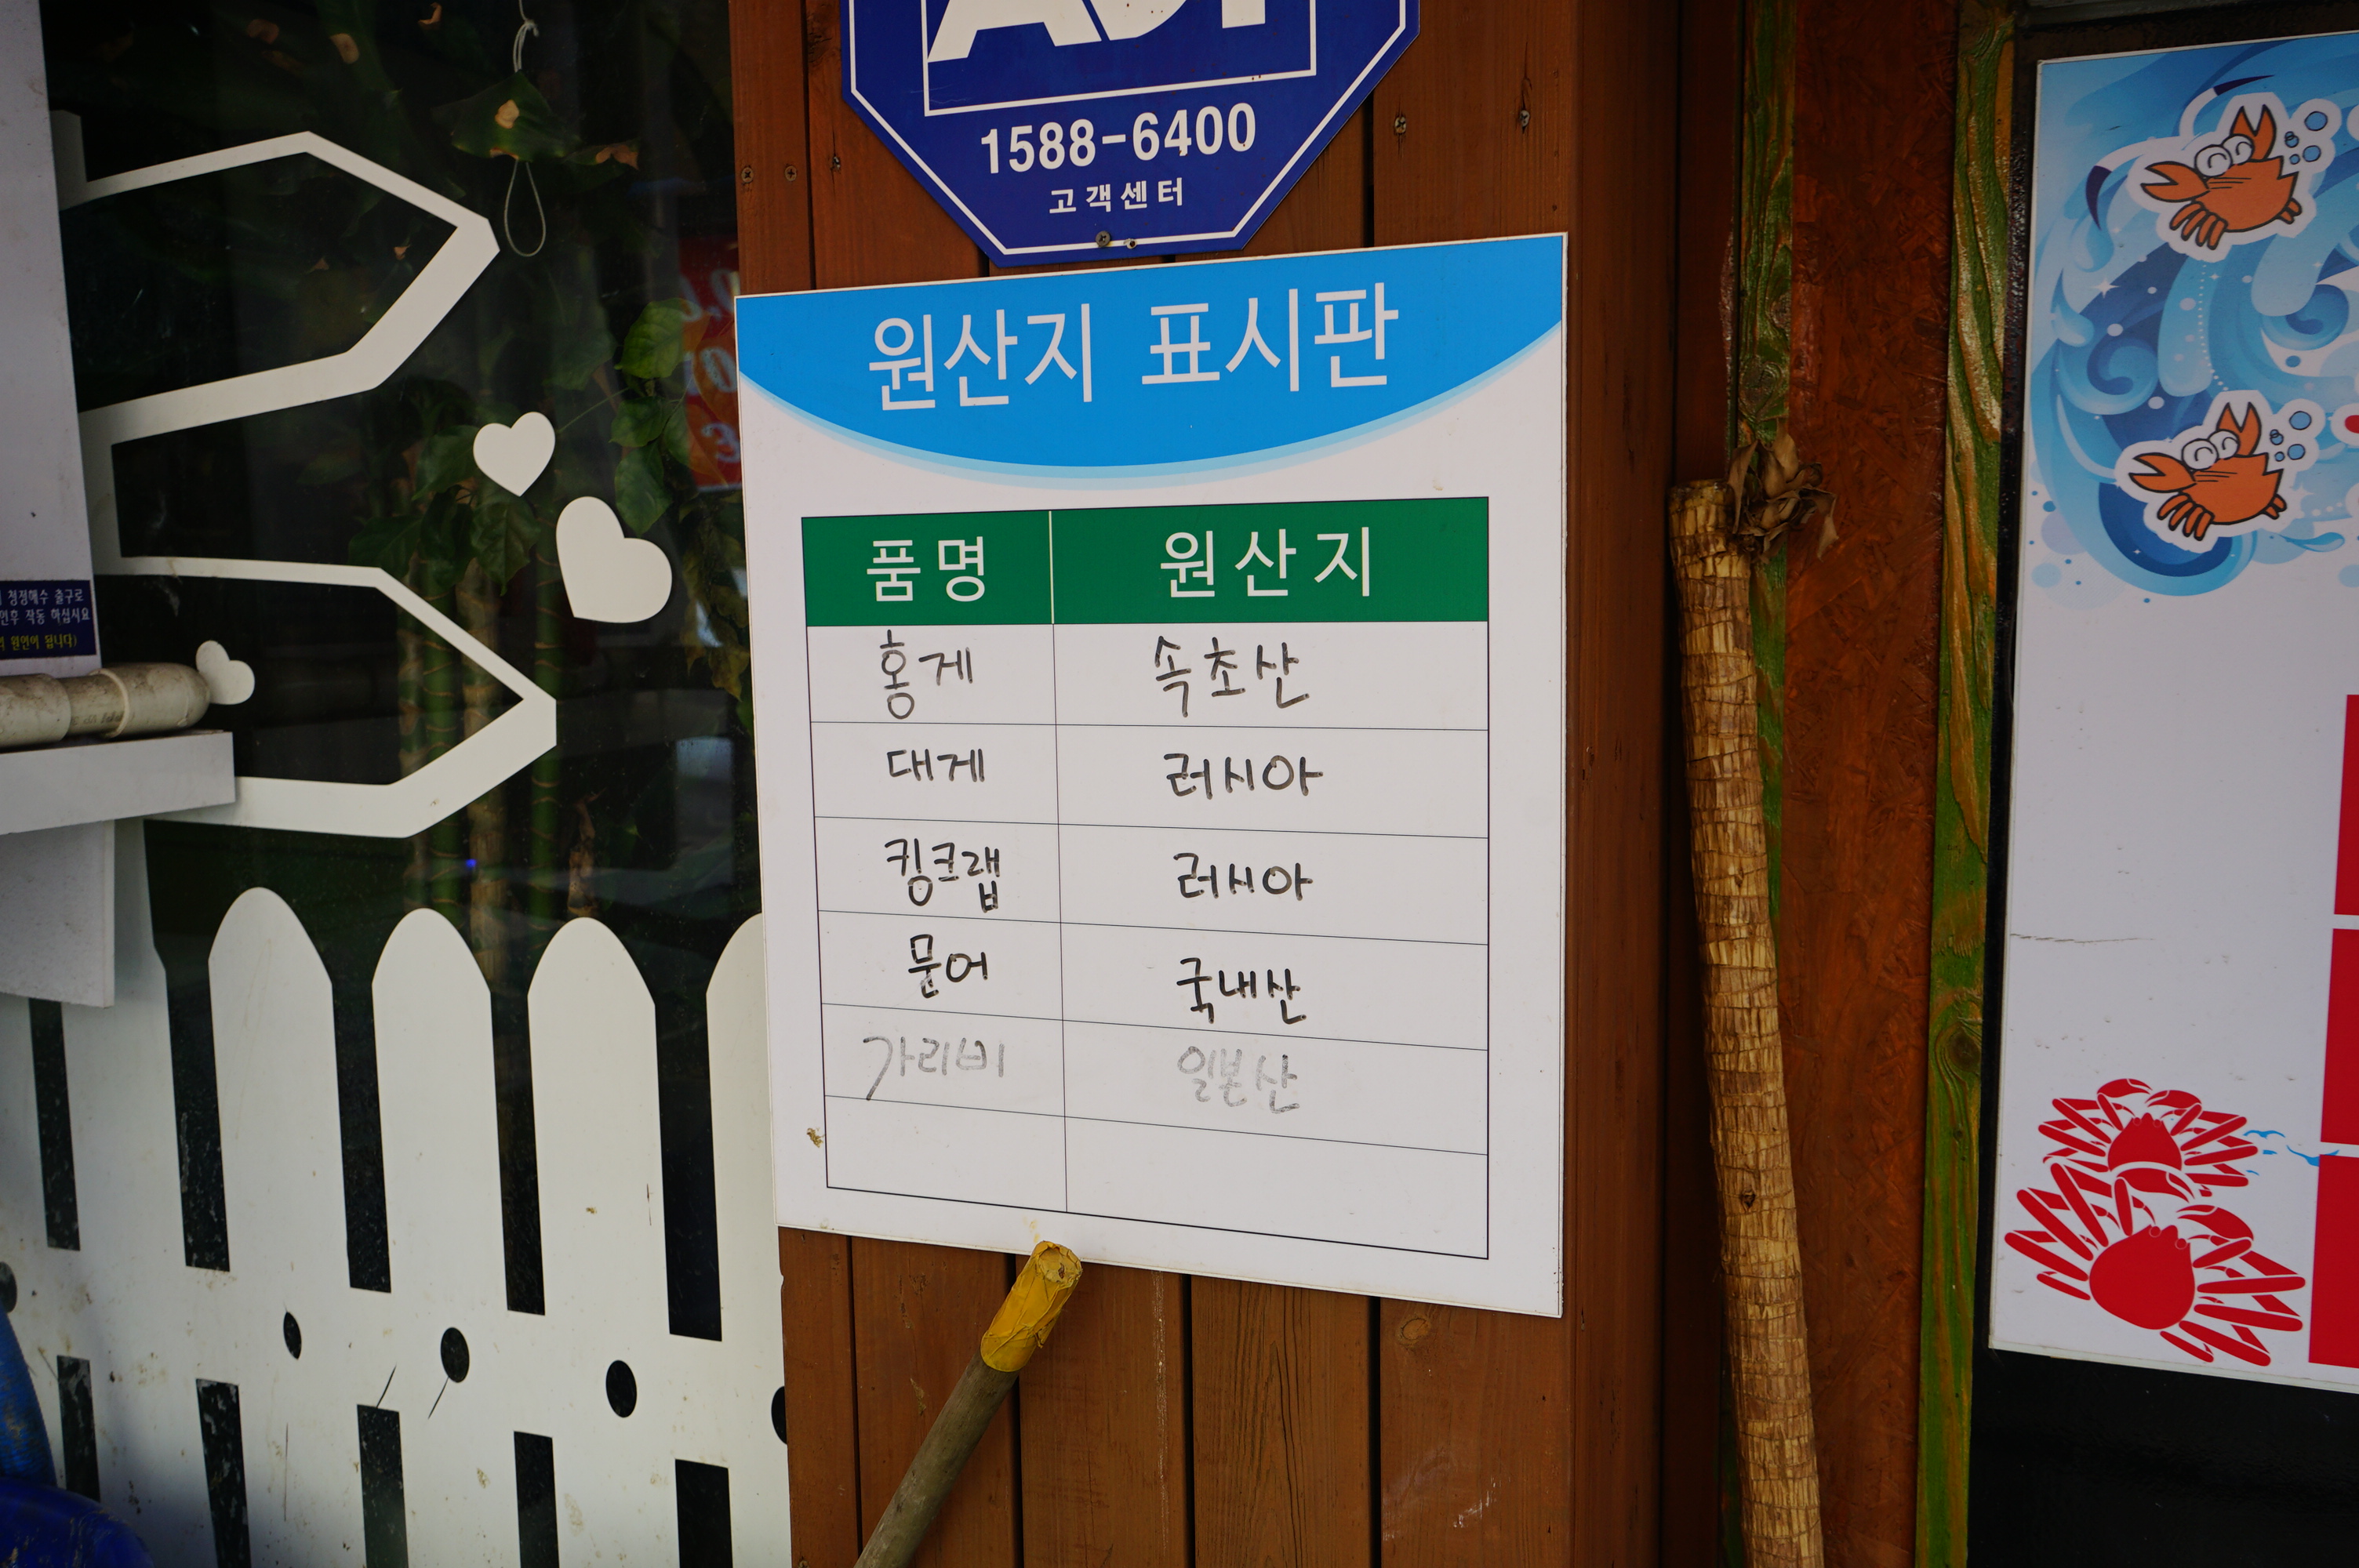 1588-6400
고객센터
원산지 표시판
품명 원산지
홍게 속초산
대게 러시아
킹크랩 러시아
문어 국내산
가리비 일본산
청정해수 출구로
작동 하십시요
원인이 됩니다)